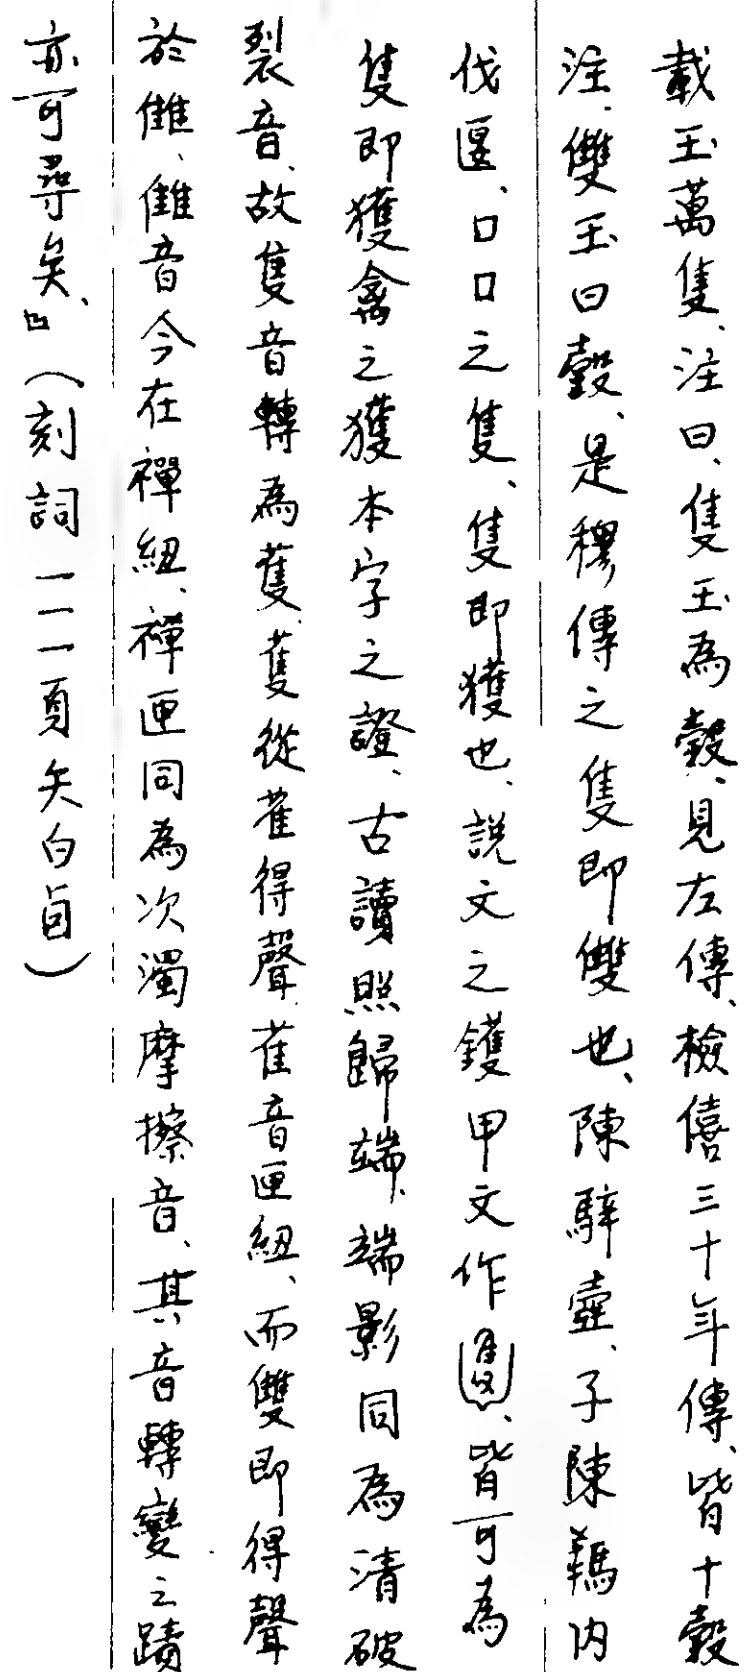 載玉萬隻、注曰、隻玉為瑴、見左傳、檢僖三十年傳、皆十瑴
注、雙玉曰瑴、是穆傳之隻即雙也、陳騂壺、子陳內
伐匽、口口之隻、隻即獲也、說文之鑊甲文作、皆可為
隻即獲禽之獲本字之證、古讀照歸端、端影同為清破
裂音、故隻音轉為蒦、蒦從萑得聲、萑音匣紐、而雙即得聲
於雔、雔音今在禪紐、禪匣同為次濁摩擦音、其音轉變之蹟
亦可尋矣、』（刻詞一一一頁矢白卣）